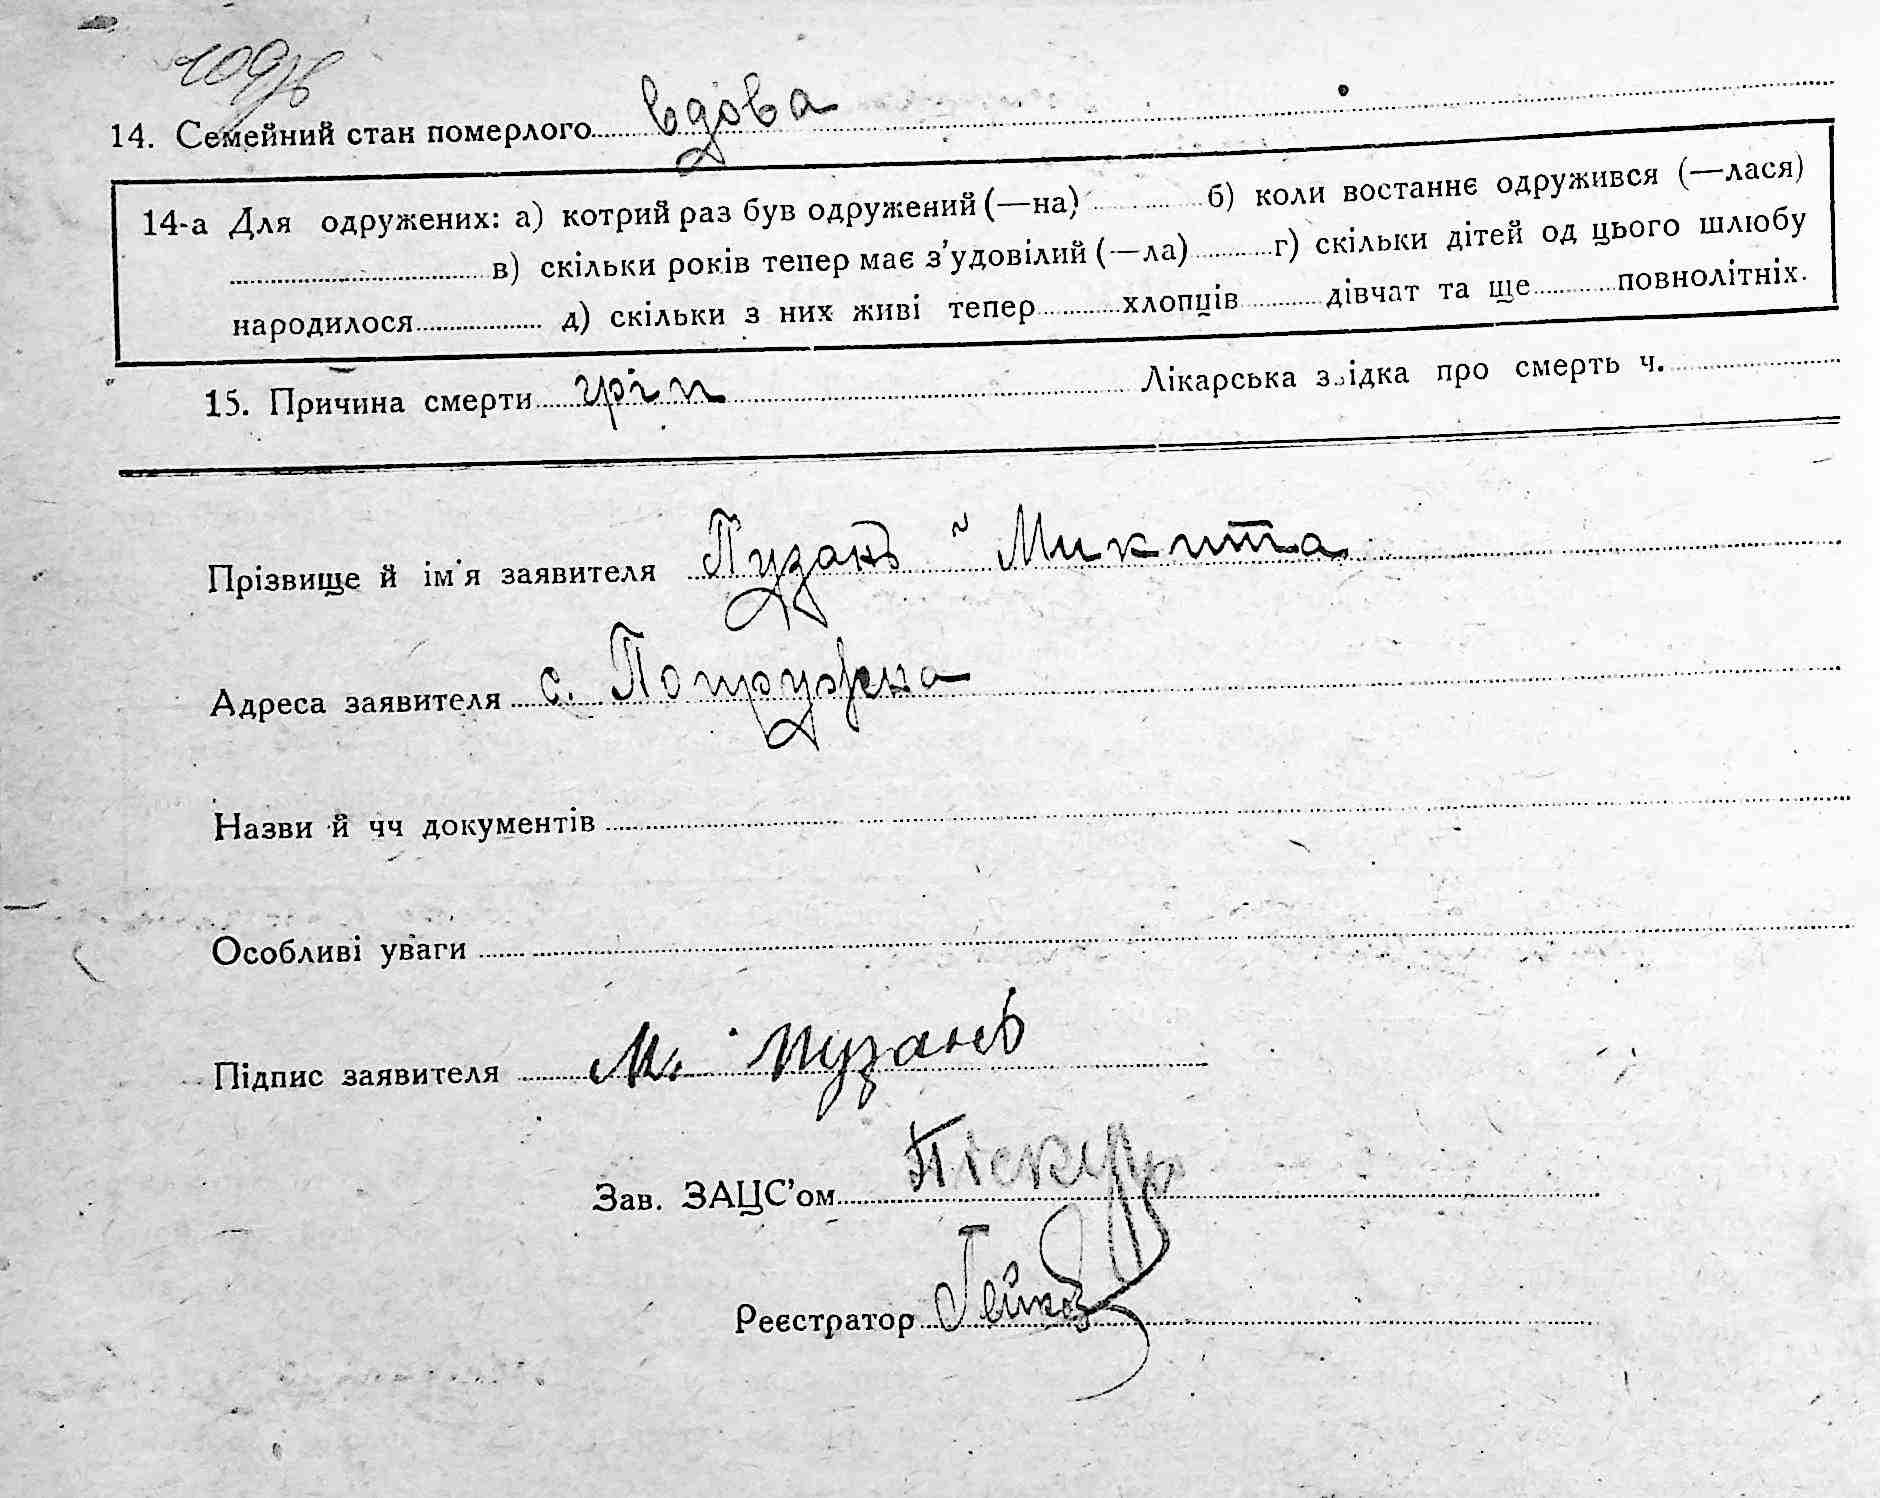 109зв
14. Семейний стан померлого вдова
14-а Для одружених: а) котрий раз був одружений (—на) б) коли востаннє одружився (—лася)
в) скільки років тепер має з'удовілий (—ла) г) скільки дітей од цього шлюбу
народилося д) скільки з них живі тепер хлопців дівчат та ще повнолітніх.
15. Причина смерти гріп Лікарська звідка про смерть ч.
Прізвище й ім'я заявителя Пузань Микита
Адреса заявителя с. Погружена
Назви й чч документів
Особливі уваги
Підпис заявителя М. Пузань
Зав. ЗАЦС'ом
Реєстратор